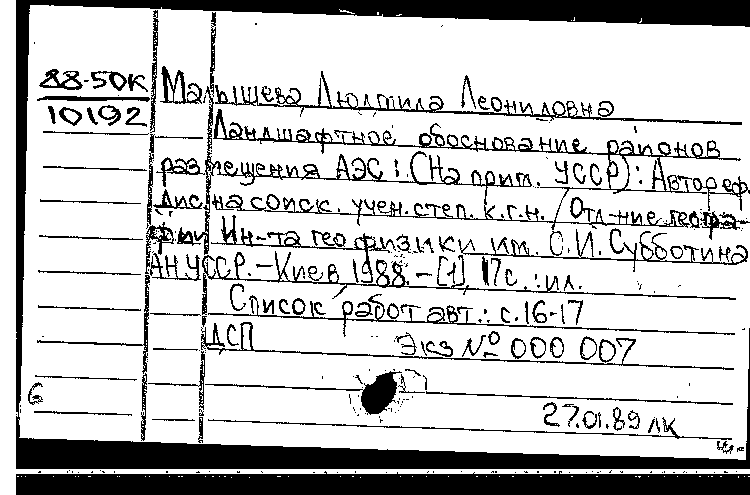 88-50К
10192
Малышева, Людмила Леонидовна
Ландшафтное обоснование районов
размещения АЭС : (На прим. УССР) : Автореф.
дис. на соиск. учен. степ. к.г.н. / Отд-ние геогра-
фии Ин-та геофизики им. С.И. Субботина
АН УССР. - Киев, 1988. - [1], 17с. : ил.
Список работ авт.: с.16-17
ДСП Экз № 000 007
6
27.01.89 лк